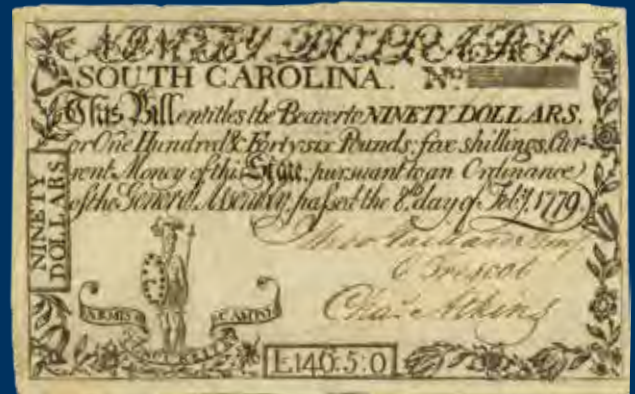 NINETY DOLLARS
SOUTH CAROLINA. No.
This Bill entitles the Bearer to NINETY DOLLARS,
or One Hundred & Forty six Pounds; five shillings, Cur-
rent Money of this State, pursuant to an Ordinance
of the General Assembly, passed the 8th. day of Feby. 1779.
NINETY
DOLLARS
Chas. Atkins
ARMIS
£146:5:0